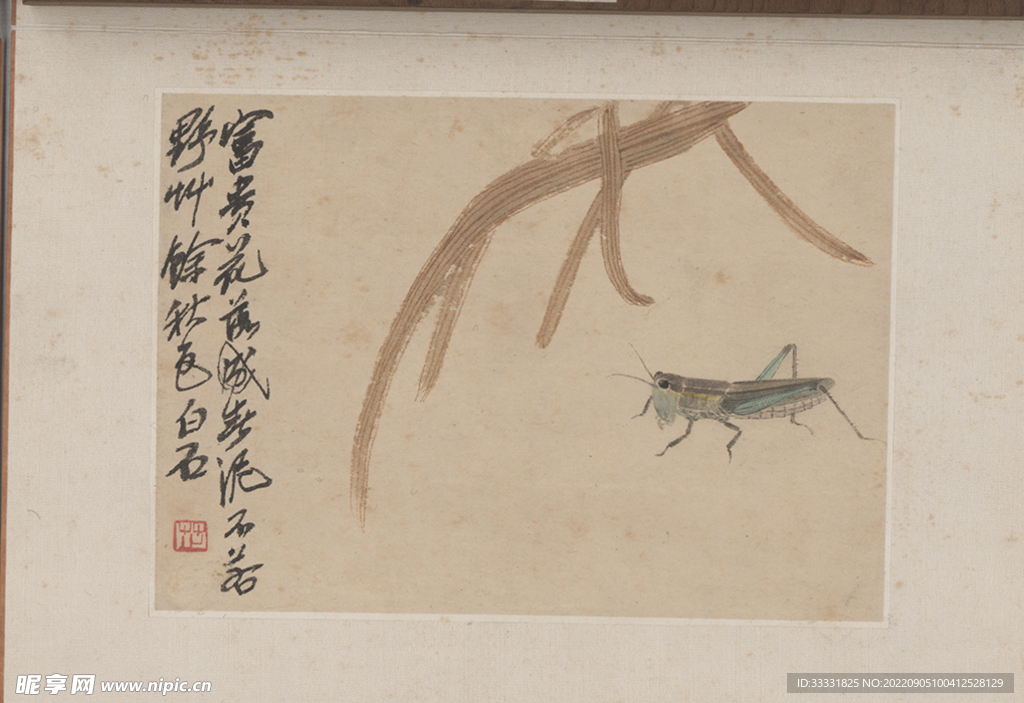 富貴花落成春泥不若
野艸餘秋色白石
昵享网 www.nipic.cn
ID:33331825 NO:20220905100412528129